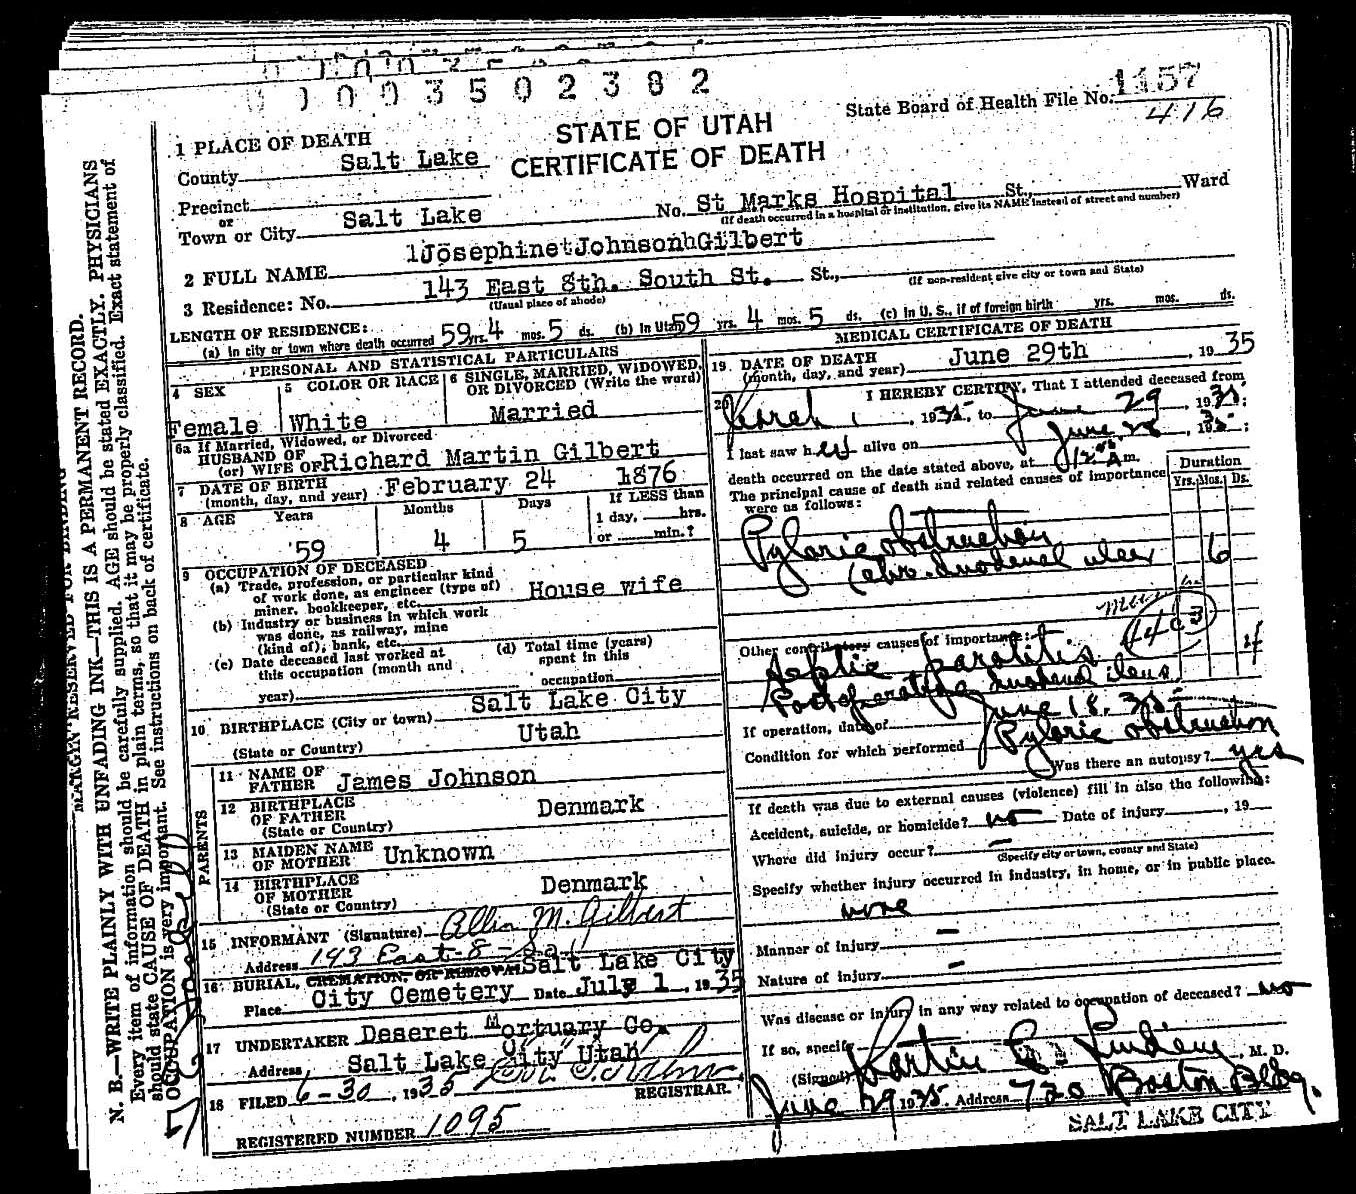 0 0 0 3 5 0 2 3 8 2
State Board of Health File No. 1157
416
STATE OF UTAH
CERTIFICATE OF DEATH
1 PLACE OF DEATH
County Salt Lake
Precinct
or
Town or City Salt Lake No. St Marks Hospital St., Ward
(If death occurred in a hospital or institution, give its NAME instead of street and number)
2 FULL NAME Josephine Johnson Gilbert
3 Residence: No. 143 East 8th. South St. St.,
(Usual place of abode) (If non-resident give city or town and State)
LENGTH OF RESIDENCE:
(a) In city or town where death occurred 59 yrs. 4 mos. 5 ds. (b) In Utah 59 yrs. 4 mos. 5 ds. (c) In U. S., if of foreign birth yrs. mos. ds.
PERSONAL AND STATISTICAL PARTICULARS
4 SEX Female
5 COLOR OR RACE White
6 SINGLE, MARRIED, WIDOWED, OR DIVORCED (Write the word) Married
6a If Married, Widowed, or Divorced
HUSBAND OF
(or) WIFE OF Richard Martin Gilbert
7 DATE OF BIRTH
(month, day, and year) February 24 1876
8 AGE Years 59 Months 4 Days 5 If LESS than 1 day, hrs. or min.?
9 OCCUPATION OF DECEASED
(a) Trade, profession, or particular kind
of work done, as engineer (type of)
miner, bookkeeper, etc. House wife
(b) Industry or business in which work
was done, as railway, mine
(kind of), bank, etc.
(c) Date deceased last worked at
this occupation (month and
year)
(d) Total time (years)
spent in this
occupation
10 BIRTHPLACE (City or town) Salt Lake City
(State or Country) Utah
PARENTS
11 NAME OF
FATHER James Johnson
12 BIRTHPLACE
OF FATHER Denmark
(State or Country)
13 MAIDEN NAME
OF MOTHER Unknown
14 BIRTHPLACE
OF MOTHER Denmark
(State or Country)
15 INFORMANT (Signature) Allin M. Gilbert
Address 143 East 8 - So. Salt Lake City
16 BURIAL, CREMATION, OR REMOVAL
Place City Cemetery Date July 1, 1935
17 UNDERTAKER Deseret Mortuary Co.
Address Salt Lake City Utah
18 FILED 6-30, 1935 REGISTRAR.
REGISTERED NUMBER 1095
MEDICAL CERTIFICATE OF DEATH
19 DATE OF DEATH
(month, day, and year) June 29th, 1935
20 I HEREBY CERTIFY, That I attended deceased from
March 1, 1935 to June 29, 1935;
I last saw her alive on June 28, 1935;
death occurred on the date stated above, at A m.
The principal cause of death and related causes of importance
were as follows:
Duration
Yrs. Mos. Ds.
Pyloric obstruction
(chr. duodenal ulcer 6
Other contributory causes of importance:
Septic parotitis
Postoperative duodenal ileus
If operation, date of June 18. 35
Condition for which performed Pyloric obstruction
Was there an autopsy? yes
If death was due to external causes (violence) fill in also the following:
Accident, suicide, or homicide? no Date of injury, 19
Where did injury occur? —
(Specify city or town, county and State)
Specify whether injury occurred in industry, in home, or in public place.
none
Manner of injury —
Nature of injury —
Was disease or injury in any way related to occupation of deceased? no
If so, specify
(Signed) Martin C. Lindem, M. D.
June 29 1935 Address 720 Boston Bldg.
SALT LAKE CITY
MARGIN RESERVED FOR BINDING
N. B.—WRITE PLAINLY WITH UNFADING INK—THIS IS A PERMANENT RECORD.
Every item of information should be carefully supplied. AGE should be stated EXACTLY. PHYSICIANS
should state CAUSE OF DEATH in plain terms, so that it may be properly classified. Exact statement of
OCCUPATION is very important. See instructions on back of certificate.